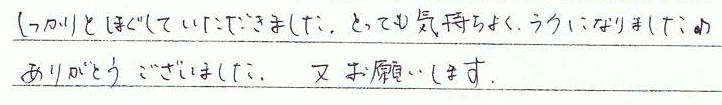 しっかりとほぐしていただきました。とっても気持ちよく、ラクになりました♪
ありがとうございました。 又お願いします。